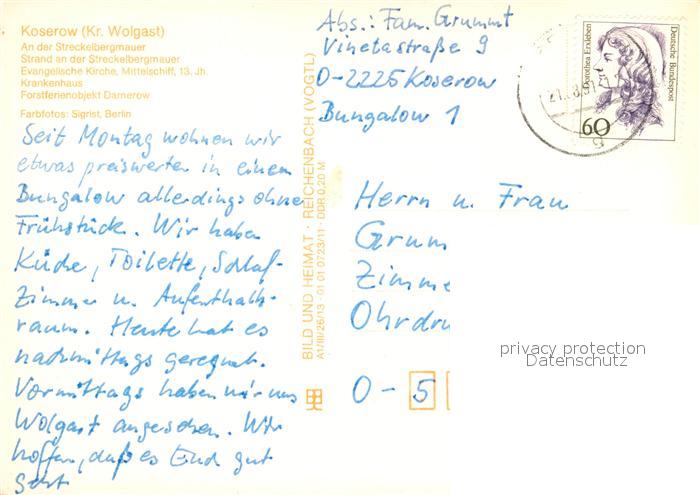 Koserow (Kr. Wolgast)
An der Streckelbergmauer
Strand an der Streckelbergmauer
Evangelische Kirche, Mittelschiff, 13. Jh.
Krankenhaus
Forstferienobjekt Damerow
Farbfotos: Sigrist, Berlin
Seit Montag wohnen wir
etwas preiswerter in einem
Bungalow allerdings ohne
Frühstück. Wir haben
Küche, Toilette, Schlaf-
Zimmer u. Aufenthalts-
raum. Heute hat es
nachmittags geregnet.
Vormittags haben wir uns
Wolgast angesehen. Wir
hoffen, daß es Euch gut
geht
BILD UND HEIMAT · REICHENBACH (VOGTL)
A1/III/26/13 · 01 01 0723/11 · DDR 0,20 M
Abs.: Fam. Grummt
Vinetastraße 9
O-2225 Koserow
Bungalow 1
Dorothea Erxleben
Deutsche Bundespost
60
Herrn u. Frau
Grum
Zimme
Ohrdru
O - 5
privacy protection
Datenschutz